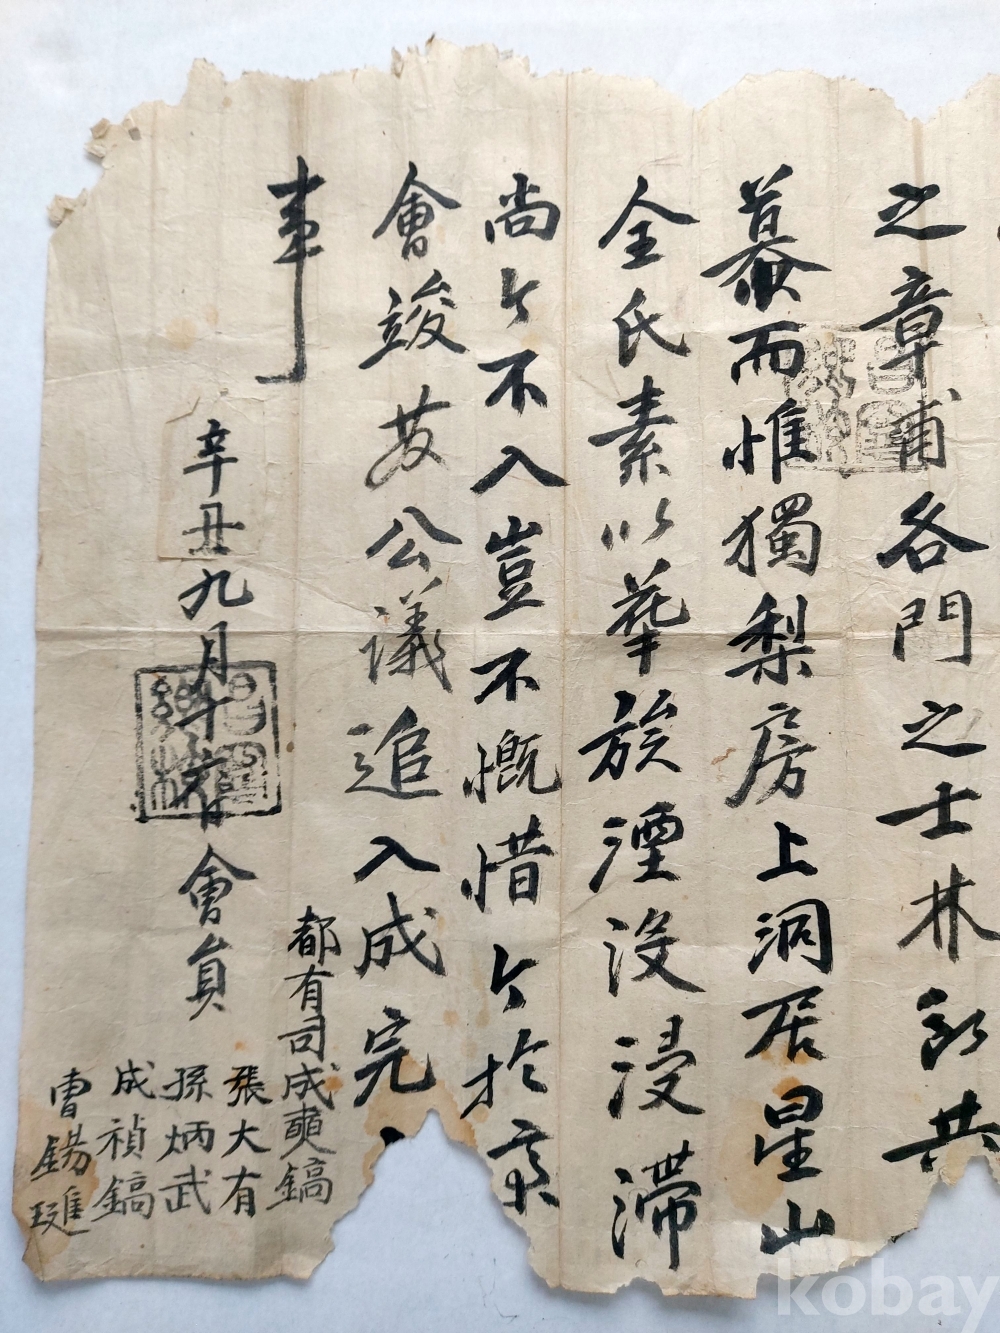 之章甫各門之士林郎共
慕而惟獨梨房上洞居星山
全氏素以華族湮沒浸滯
尚今不入豈不慨惜今於京
會竣發公議追入成完
事
辛丑九月十六日會員
都有司成奭鎬
張大有
孫炳武
成禎鎬
曺錫璡
kobay